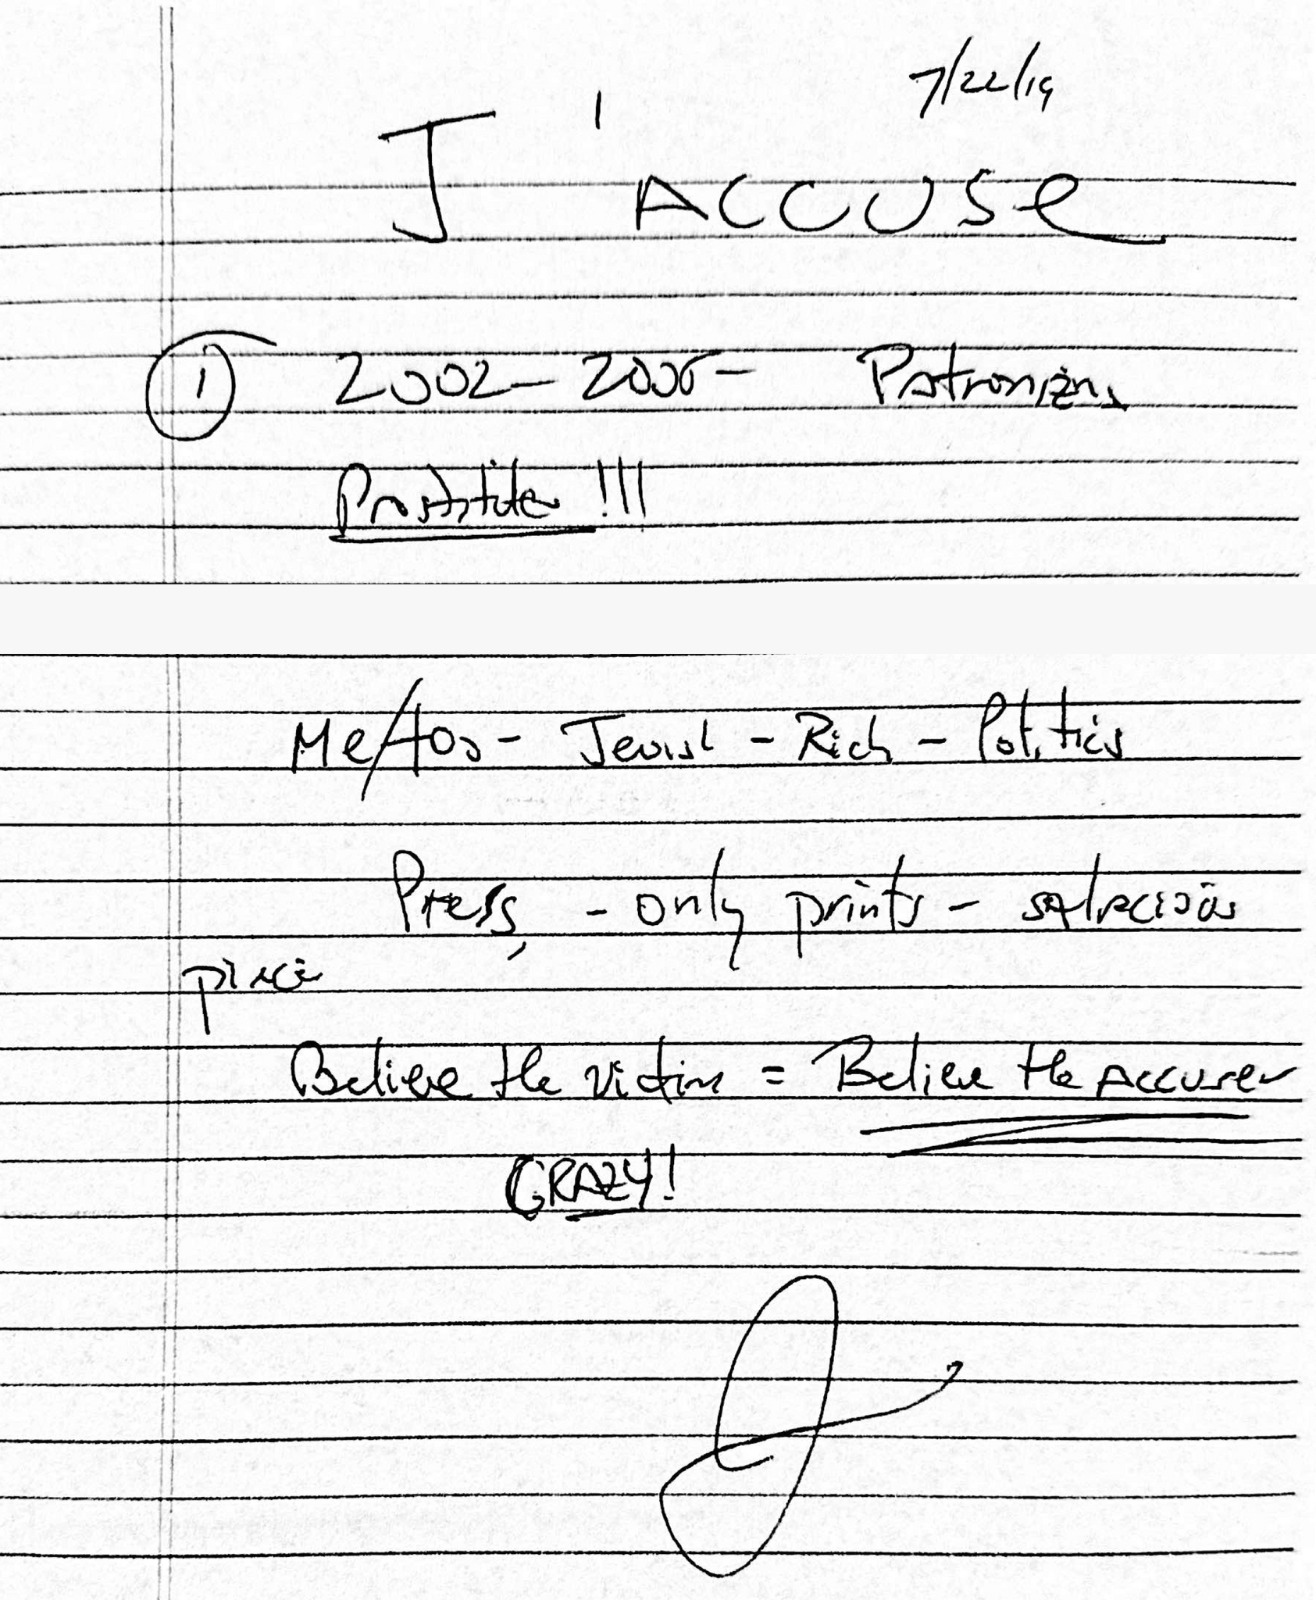 7/22/19
J'ACCUSE
① 2002 - 2005 - Patronizing
Prostitute !!!
Me/too - Jewish - Rich - Politics
Press, - only prints - salacious
piece
Believe the victim = Believe the Accuser
CRAZY!